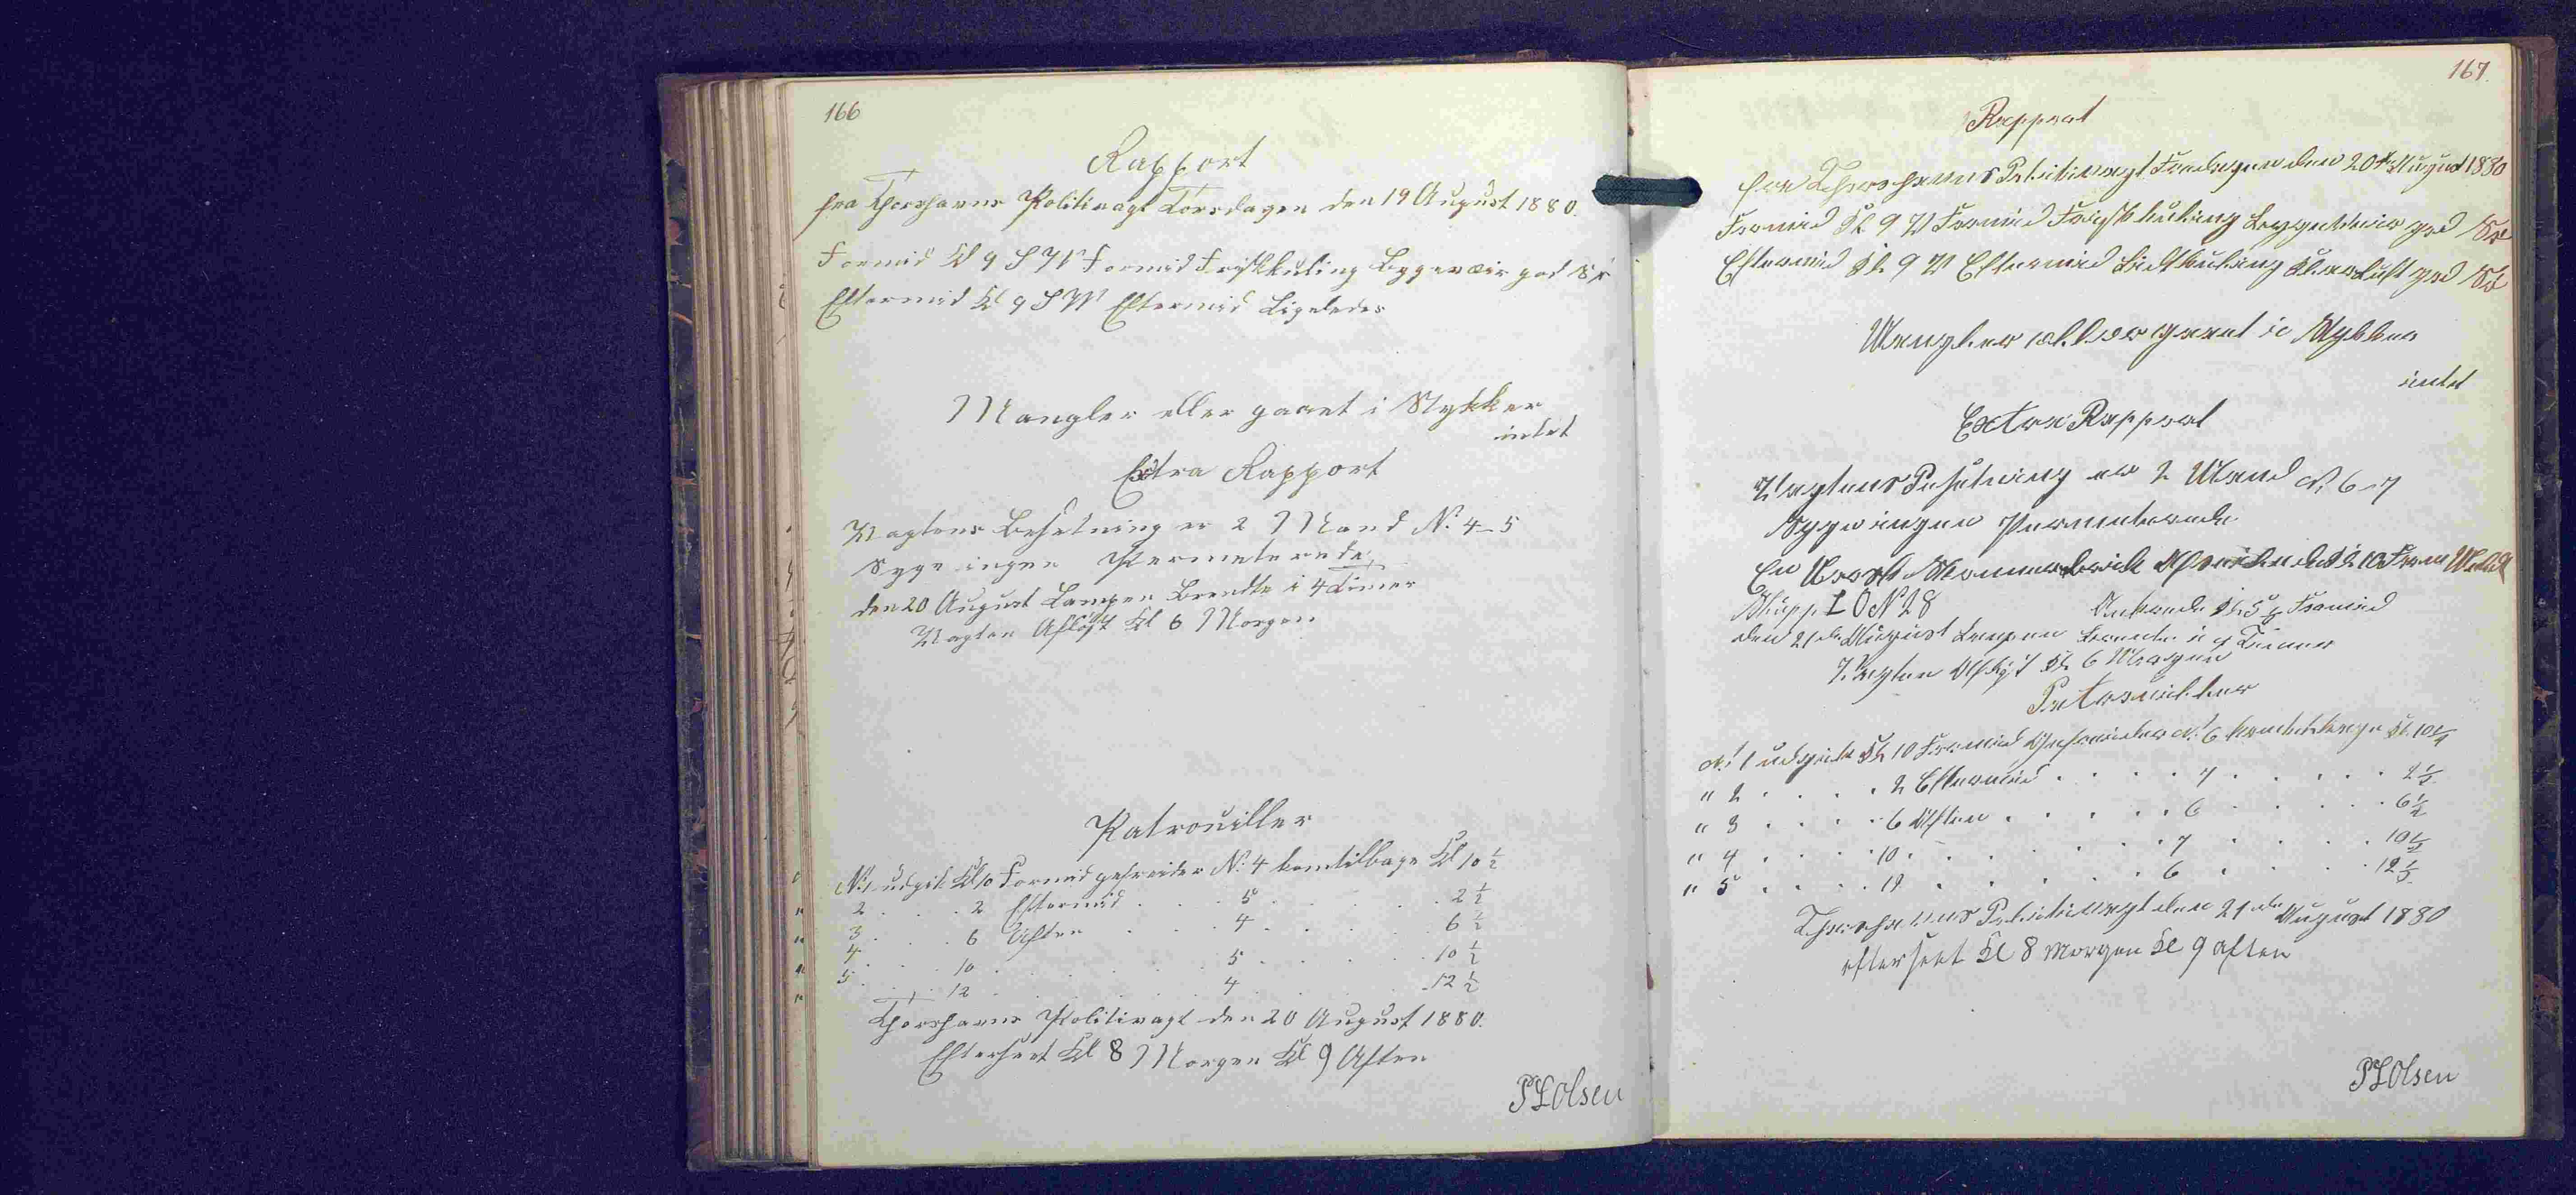 166
Rapport
fra Thorshavns Politivagt Torsdagen den 19 August 1880.
Formid Kl 9 S W Formid Friskkuling Bygeveir god Sø
Eftermid Kl 9 S W Eftermid Ligeledes
Mangler eller gaaet i Stykker
intet
Extra Rapport
Vagtens Besetning er 2 Mand No 4-5
Syge ingen Permeterede
den 20 August Lampen Brendte i 4 Timer
Vagten Afløst Kl 6 Morgen
Patrouiller
No 1 udgik Kl 10 Formid gefreider No 4 kom tilbage Kl 10 1/2
2 . . . 2 Eftermid . . . 5 . . . . . 2 1/2
3 . . . 6 Aften . . . 4 . . . . . 6 1/2
4 . . . 10 . . . . . . 5 . . . . . 10 1/2
5 . . . 12 . . . . . . 4 . . . . . 12 1/2
Thorshavns Politivagt den 20 August 1880.
Efterseet Kl 8 Morgen Kl 9 Aften
PLOlsen
167.
Rapport
fra Thorshavns Politivagt Fredagen den 20de August 1880
Formid Kl 9 V Formid Frisk kuling Byggetveir god Sø
Eftermid Kl 9 V Eftermid Lidt kuling Klar Luft god Sø
Mangler eller gaaet i Stykker
intet
Extra Rapport
Vagtens Besetning er 2 Mand No 6-7
Syge ingen Permeterede
En Norsk Kl 10 Form
Skipp L O N 28 Ankrede Kl 5 1/2 Formid
den 21de August Lampen brente i 4 Timer
Vagten Afløst Kl 6 Morgen
Patrouiller
No 1 udgik Kl 10 Formid Gefreider No 6 kom tilbage Kl 10 1/2
" 2 . . . . 2 Eftermid . . . . 7 . . . . . 2 1/2
" 3 . . . . 6 Aften . . . . . 6 . . . . . 6 1/2
" 4 . . . . 10 . . . . . . . 7 . . . . . 10 1/2
" 5 . . . . 12 . . . . . . . 6 . . . . . 12 1/2
Thorshavns Politivagt den 21de August 1880
efterseet Kl 8 Morgen Kl 9 aften
PLOlsen